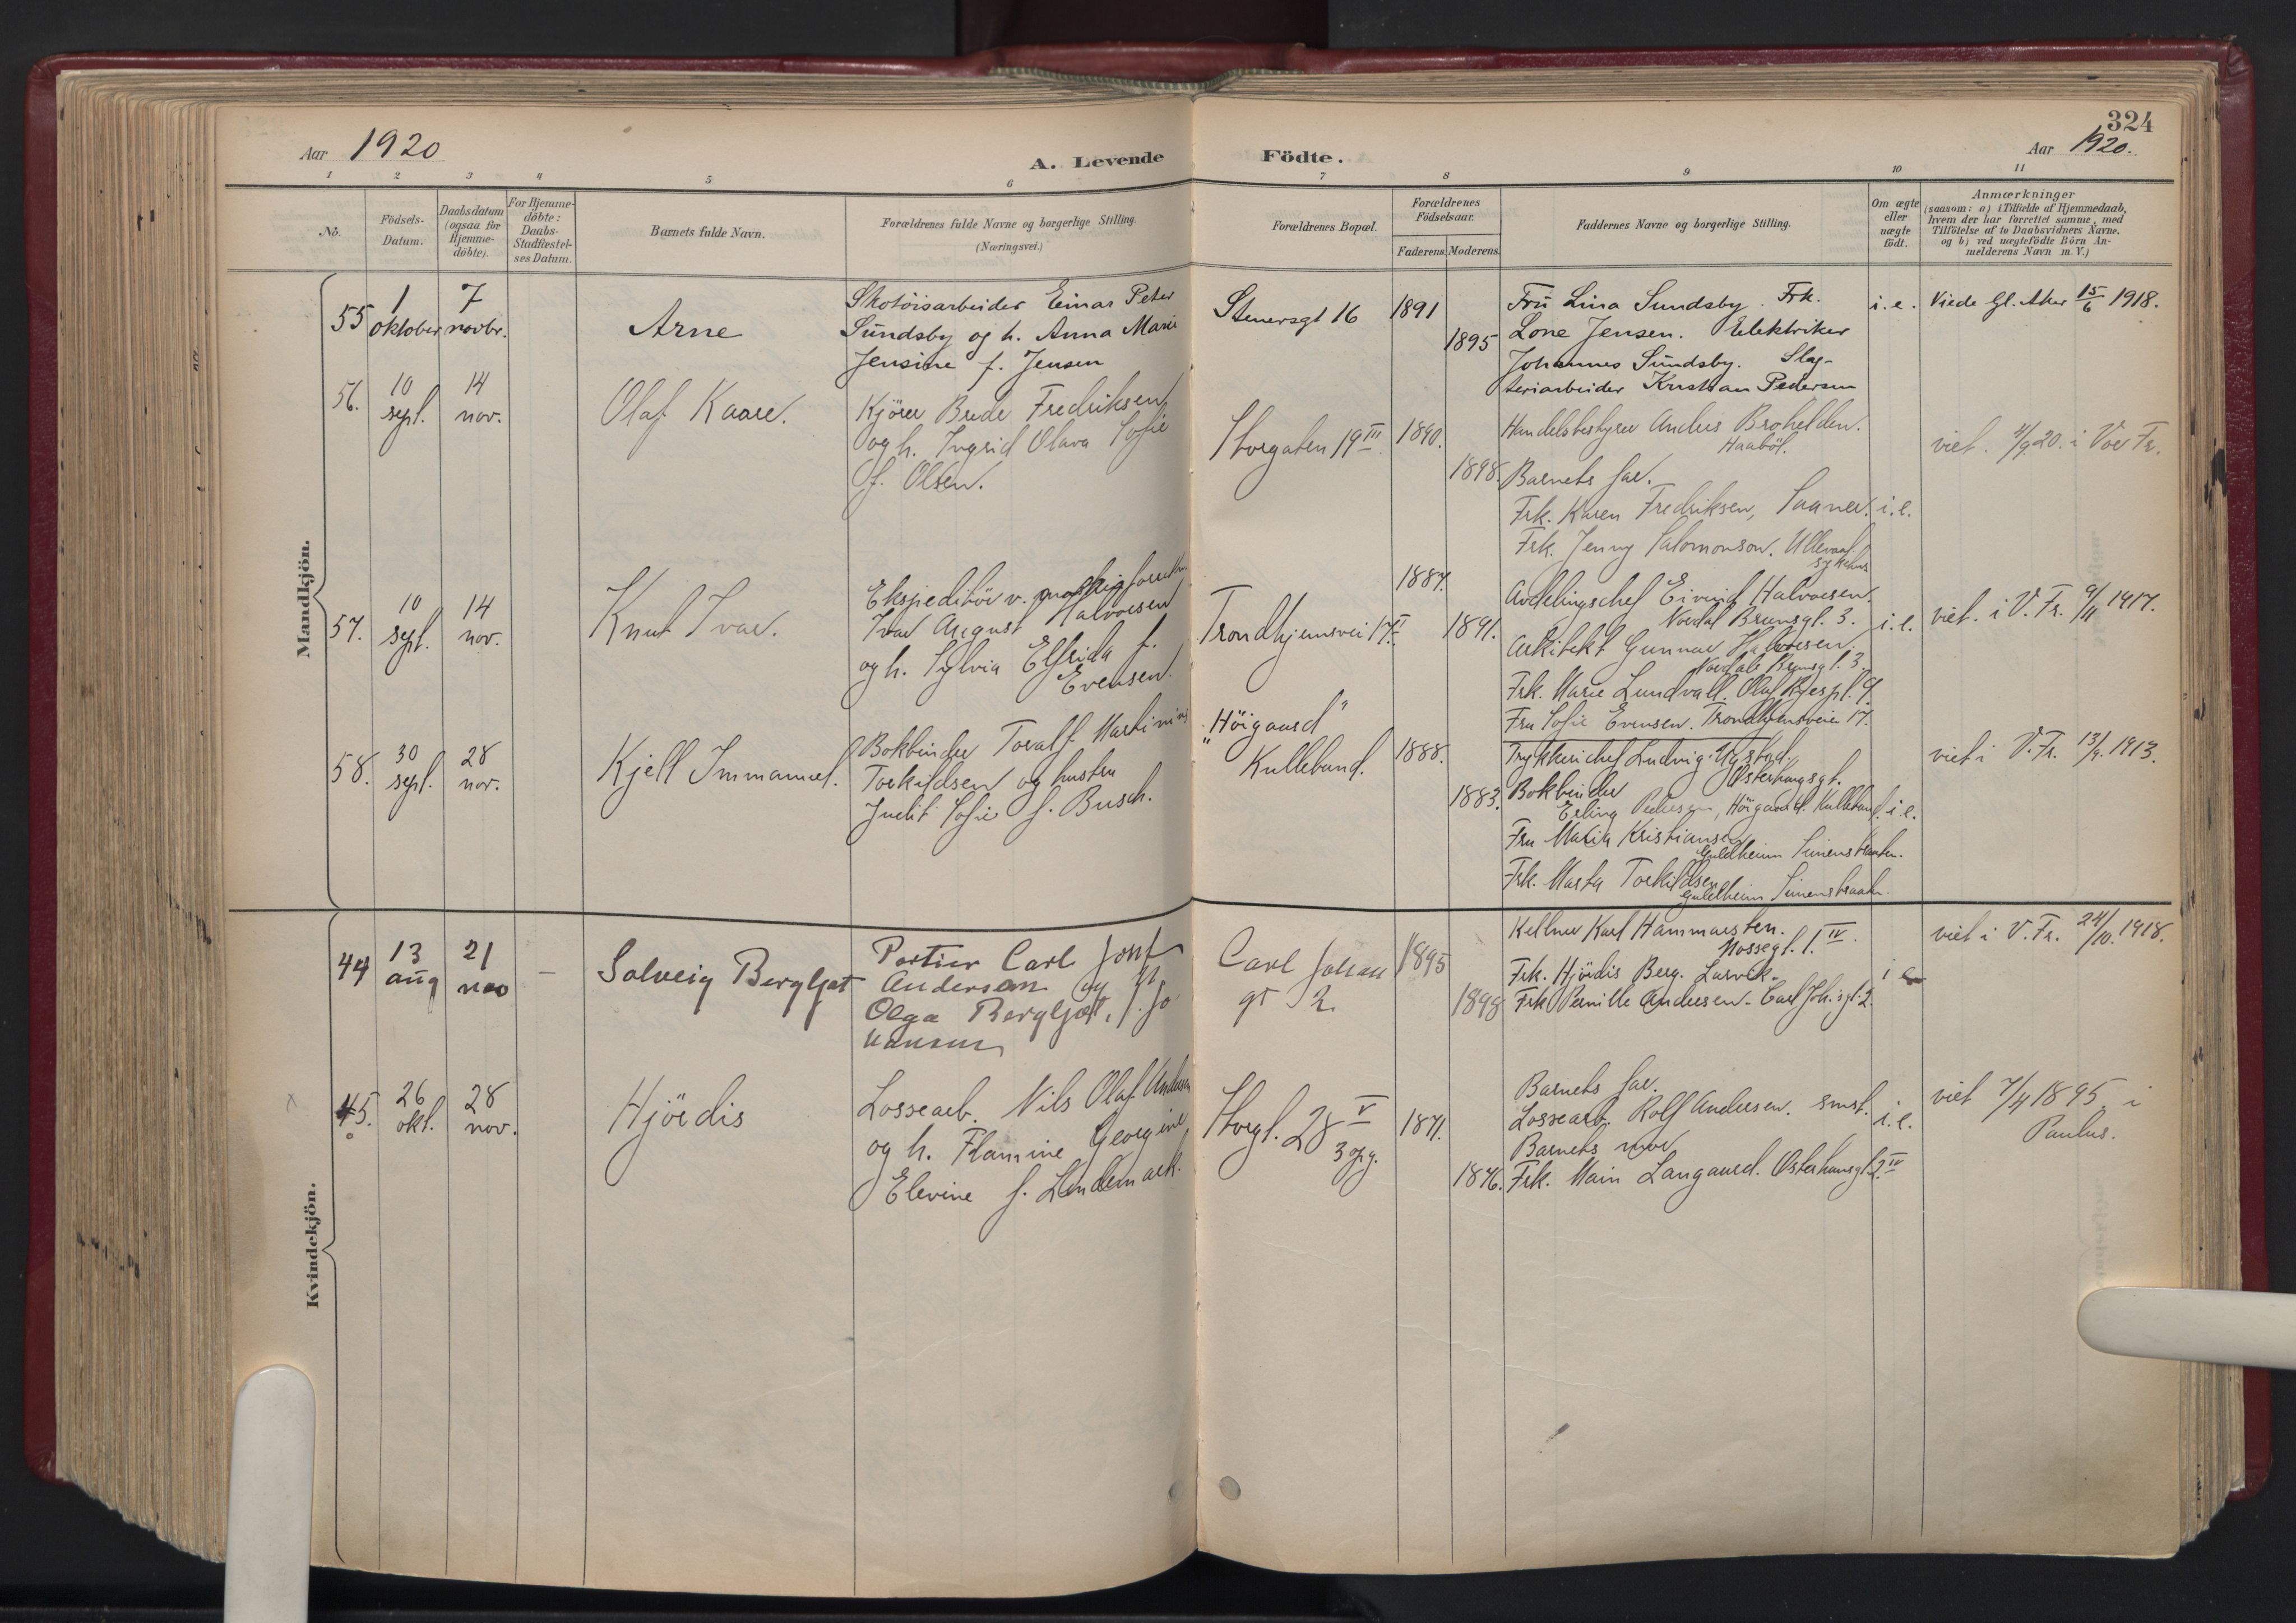 324
Aar 1920
A. Levende Födte.
Aar 1920.
1 2 3 4 5 6 7 8 9 10 11
No.
Födsels-Datum.
Daabsdatum (ogsaa for Hjemme-döbte).
For Hjemme-döbte: Daabs-Stadfæstel-ses Datum.
Barnets fulde Navn.
Forældrenes fulde Navne og borgerlige Stilling.
(Næringsvei.)
Forældrenes Bopæl.
Forældrenes Födselsaar.
Faderens. Moderens.
Faddernes Navne og borgerlige Stilling.
Om ægte eller uægte födt.
Anmærkninger
(saasom: a) i Tilfælde af Hjemmedaab,
hvem der har forrettet samme, med
Tilföielse af to Daabsvidners Navne.
og b) ved uægtefödte Börn An-
melderens Navn m. V.)
Mandkjön.
55 1 oktober 7 novbr.
Arne
Skotöisarbeider Einar Peter
Sundsby og h. Anna Marie
Jensine f. Jensen
Stenersgt 16
1891
1895
Fru Lina Sundsby. Frk.
Lone Jensen. Elektriker
Johannes Sundsby. Slag-
teriarbeider Kristian Pedersen
i. e.
Viede Gl. Aker 15/6 1918.
56. 10 sept. 14 nov.
Olaf Kaare.
Kjörer Brede Fredriksen
og h. Ingrid Olava Sofie
f. Olsen.
Storgaten 19 III.
1890.
1898.
Handelsbestyrer Anders Broholden.
Haaböl.
Barnets far.
Frk. Karen Fredriksen, Saaner.
Frk. Jenny Salomonson. Ullevaal
sykehus
i. e.
viet. 4/9 20. i Vor Fr.
57. 10 sept. 14 nov.
Knut Ivar.
Ekspeditör v.
Ivar August Halvorsen
og h. Sylvia Elfrida f.
Evensen.
Trondhjemsvei 17 I
1887.
1891.
Avdelingschef Eivind Halvorsen.
Nordal Brunsgt. 3.
Arkitekt Gunnar Halvorsen.
Nordale Brunsgt. 3.
Frk. Marie Lundvall. Olaf Ryespl. 9.
Fru Sofie Evensen. Trondhjemsveien 17.
i. e.
viet. i V. Fr. 9/11 1917.
58. 30 sept. 28 nov.
Kjell Immanuel.
Bokbinder Toralf Martinius
Torkildsen og hustru
Judit Sofie f. Busch.
"Höigaard"
Kullebund.
1888.
1883.
Trykkerichef Ludvig Nystad.
Osterhausgt.
Bokbinder
Erling Pedersen, Höigaard Kullebund.
Fru Maria Kristiansen
Guldheim Simenstraaten.
Frk. Marta Torkildsen
Guldheim Simenstraaten.
i. e.
viet i V. Fr. 13/9. 1913.
Kvindekjön.
44 13 aug 21 nov —
Solveig Bergljot
Portier Carl Josef
Andersen og H.
Olga Bergljot, f. Jo
hansen
Carl Johan
gt 2.
1895
1898
Kellner Karl Hammarsten.
Mossegt. 1. IV.
Frk. Hjördis Berg. Larvik.
Frk Pernille Andersen. Carl Joh.s gt. 2.
i e
viet i V. Fr. 24/10. 1918.
45. 26 okt. 28 nov.
Hjördis
Lossearb. Nils Olaf Andersen
og h. Flamine Georgine
Elevine f. Lindemark.
Storgt. 28 V
3 opg.
1871.
1876.
Barnets far.
Lossearb. Rolf Andersen. smst.
Barnets mor
Frk. Main Langaard. Osterhausgt. 2 IV
i. e.
viet 7/4 1895. i
Paulus.